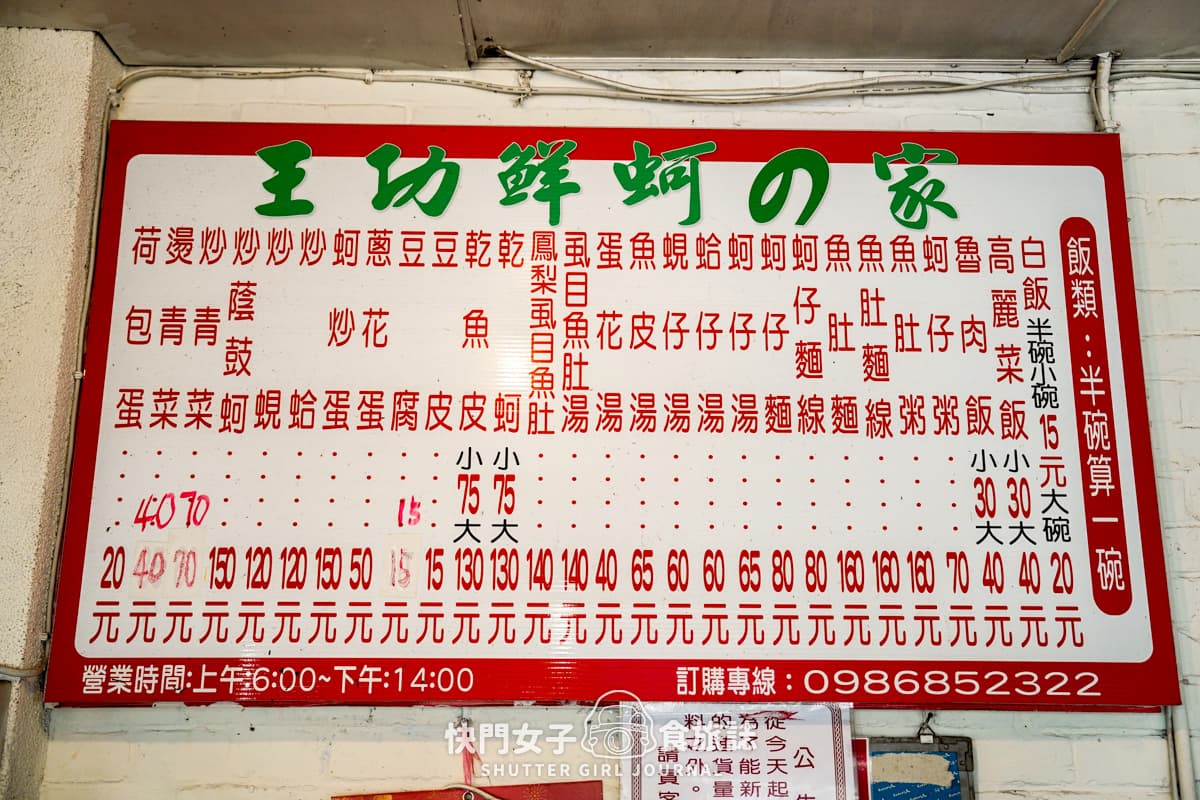 王功鮮蚵の家
飯類：半碗算一碗
白飯半碗小碗15元大碗20元
高麗菜飯小30大40元
魯肉飯小30大40元
蚵仔粥70元
魚肚粥160元
魚肚麵線160元
魚肚麵160元
蚵仔麵線80元
蚵仔麵80元
蚵仔湯65元
蛤仔湯60元
蜆仔湯60元
魚皮湯65元
蛋花湯40元
虱目魚肚湯140元
鳳梨虱目魚肚140元
乾蚵小75大130元
乾魚皮小75大130元
豆皮15元
豆腐15 15元
蔥花蛋50元
蚵炒蛋150元
炒蛤120元
炒蜆120元
炒蔭鼓蚵150元
炒青菜70 70元
燙青菜40 40元
荷包蛋20元
營業時間:上午:6:00~下午:14:00
訂購專線：0986852322
公
從今天起
能新
貨量
請貴客
快門女子 食旅誌
SHUTTER GIRL JOURNAL